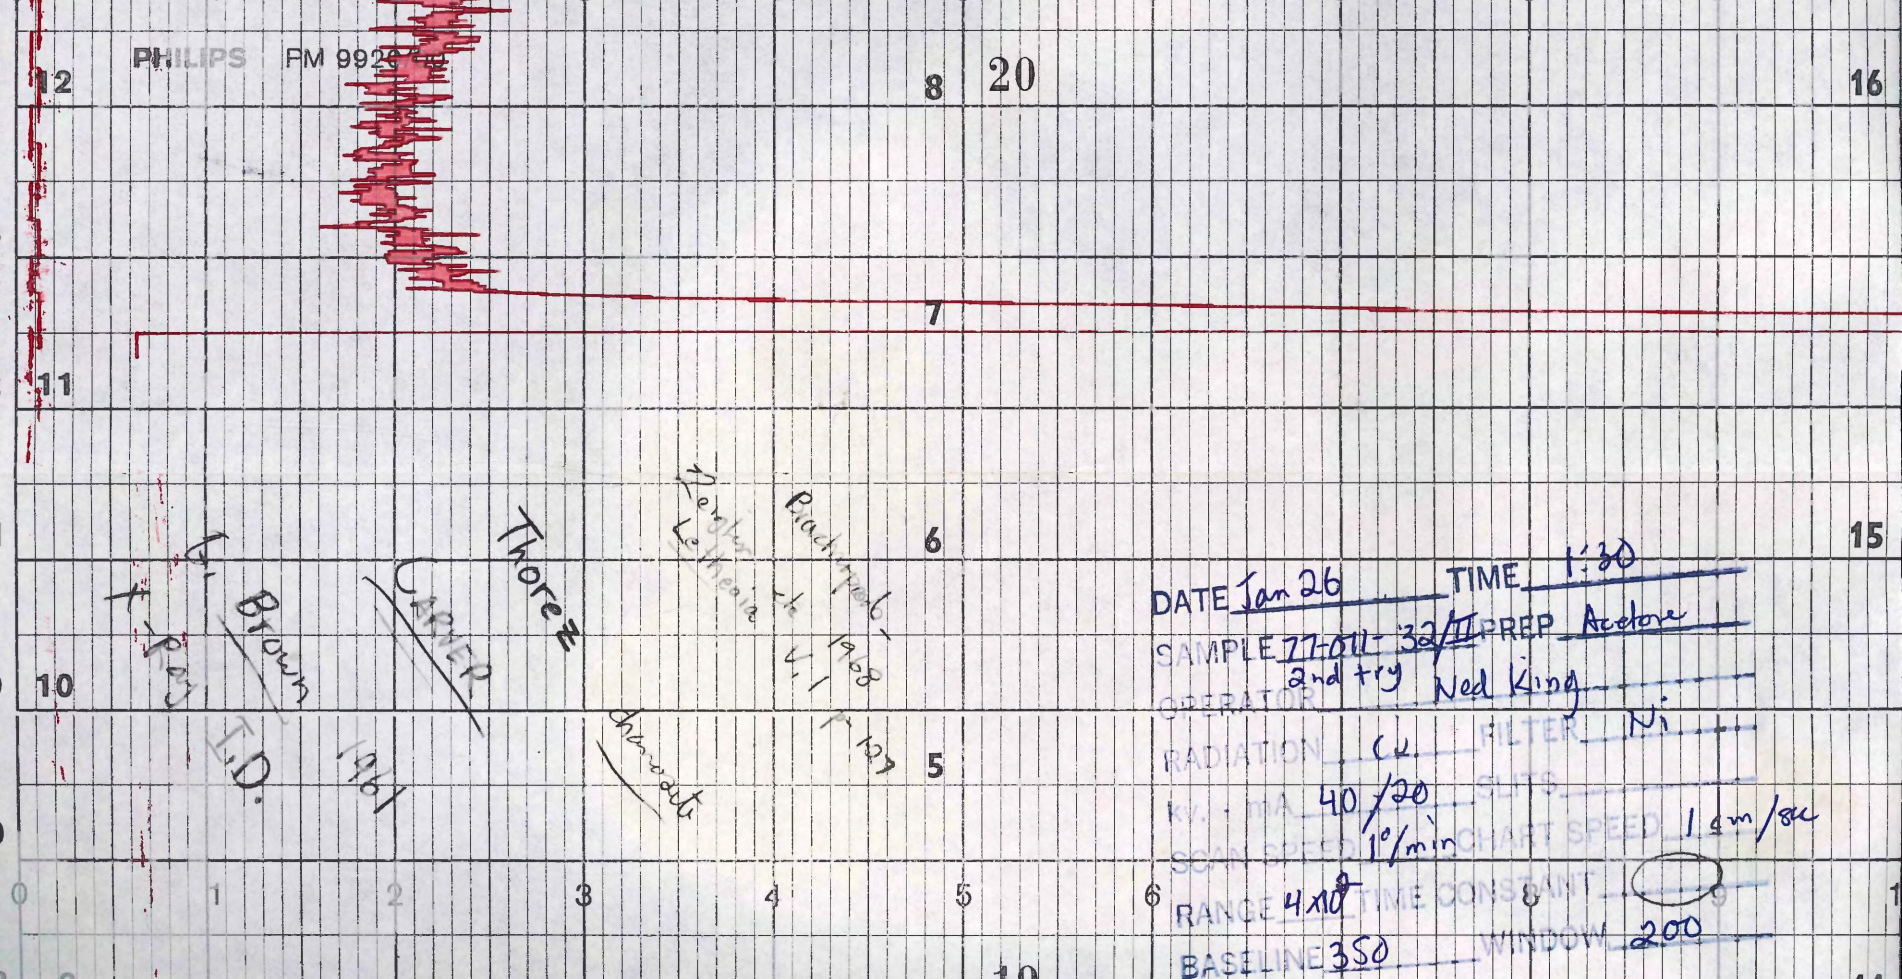 PHILIPS PM 992
12 8 20 16
7
11
6 15
10
5
0 1 2 3 4 5 6 8 9 1
X-Ray
I.D.
G. Brown
1961
CARVER
Thorez
chamosite
1968
V.1
p-127
DATE Jan 26 TIME 1:30
SAMPLE 77-011-32/II PREP Acetone
2nd try
OPERATOR Ned King
RADIATION Cu. FILTER Ni
kv. - mA 40/20 SLITS
SCAN SPEED 1°/min CHART SPEED 1 cm/sec
RANGE TIME CONSTANT
BASELINE 350 WINDOW 200